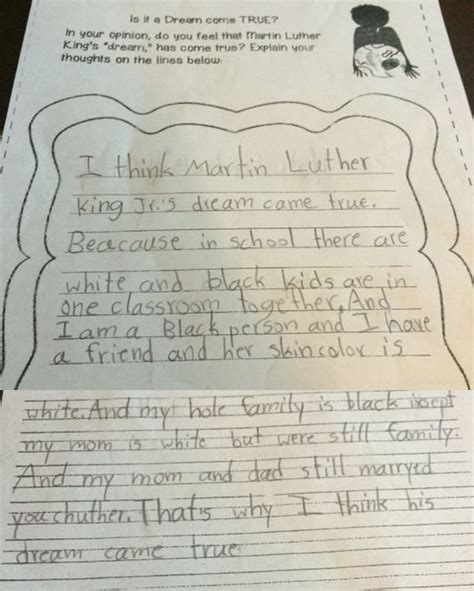 Is it a Dream come TRUE?
In your opinion, do you feel that Martin Luther
King's "dream," has come true? Explain your
thoughts on the lines below.
I think Martin Luther
King Jr.'s dream came true.
Beacause in school there are
white and black kids are in
one classroom together. And
I am a Black person and I have
a friend and her skin color is
white. And my hole family is black insept
my mom is white but were still family.
And my mom and dad still marryed
you chuther. That's why I think his
dream came true